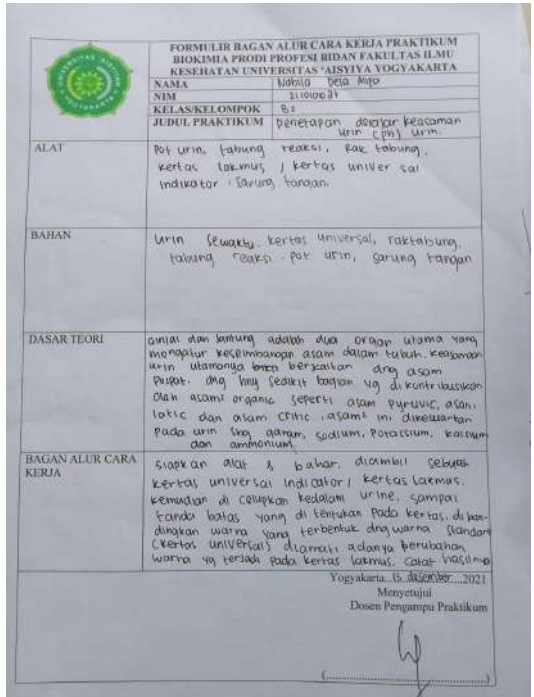 FORMULIR BAGAN ALUR CARA KERJA PRAKTIKUM
BIOKIMIA PRODI PROFESI BIDAN FAKULTAS ILMU
KESEHATAN UNIVERSITAS 'AISYIYA YOGYAKARTA
NAMA Nabila Dela
NIM
KELAS/KELOMPOK B2
JUDUL PRAKTIKUM Penetapan derajar keasaman
urin (pH) urin.
ALAT Pot urin, tabung reaksi, Rak tabung,
kertas lakmus / kertas univer sal
indikator, sarung tangan.
BAHAN urin sewaktu, kertas universal, raktabung,
tabung reaksi, pot urin, sarung tangan
DASAR TEORI Ginjal dan Jantung adalah dua organ utama yang
mengatur keseimbangan asam dalam tubuh. keasaman
urin utamanya berkaitan dng asam
Pospat. dng hny sedikit bagian yg dikontribusikan
oleh asam2 organic seperti asam pyruvic, asam
latic dan asam citric. asam2 ini dikeluarkan
pada urin sbg garam, sodium, Potassium, kalsium
dan ammonium.
BAGAN ALUR CARA
KERJA
siapkan alat & bahan, diambil sebuah
kertas universal indicator / kertas lakmus.
kemudian di celupkan kedalam urine, sampai
tanda batas yang di tentukan pada kertas. di ban-
dingkan warna yang terbentuk dng warna standart
(kertas universal) diamati adanya perubahan
warna yg terjadi pada kertas lakmus. catat hasilnya
Yogyakarta 15 desember 2021
Menyetujui
Dosen Pengampu Praktikum
(........................................)